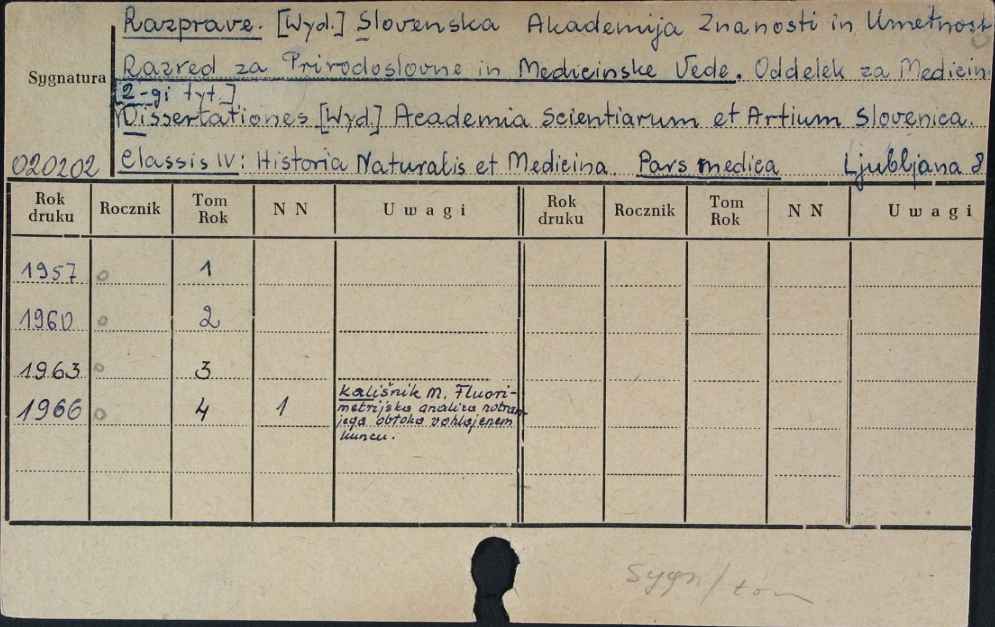 Razprave. [Wyd.] Slovenska Akademija Znanosti in Umetnost
Razred za Prirodoslovne in Medicinske Vede. Oddelek za Medicin
Sygnatura
[2-gi tyt.]
Dissertationes [Wyd.] Academia Scientiarum et Artium Slovenica.
020202 Classis IV: Historia Naturalis et Medicina Pars medica Ljubljana 8
Rok druku Rocznik Tom Rok NN Uwagi Rok druku Rocznik Tom Rok NN Uwagi
1957 o 1
1960 o 2
1963 o 3
1966 o 4 1 Kališnik M. Fluori-
metrijska analiza notran-
jega obtoka v ohlajenem
kuncu.
Sygn/tom